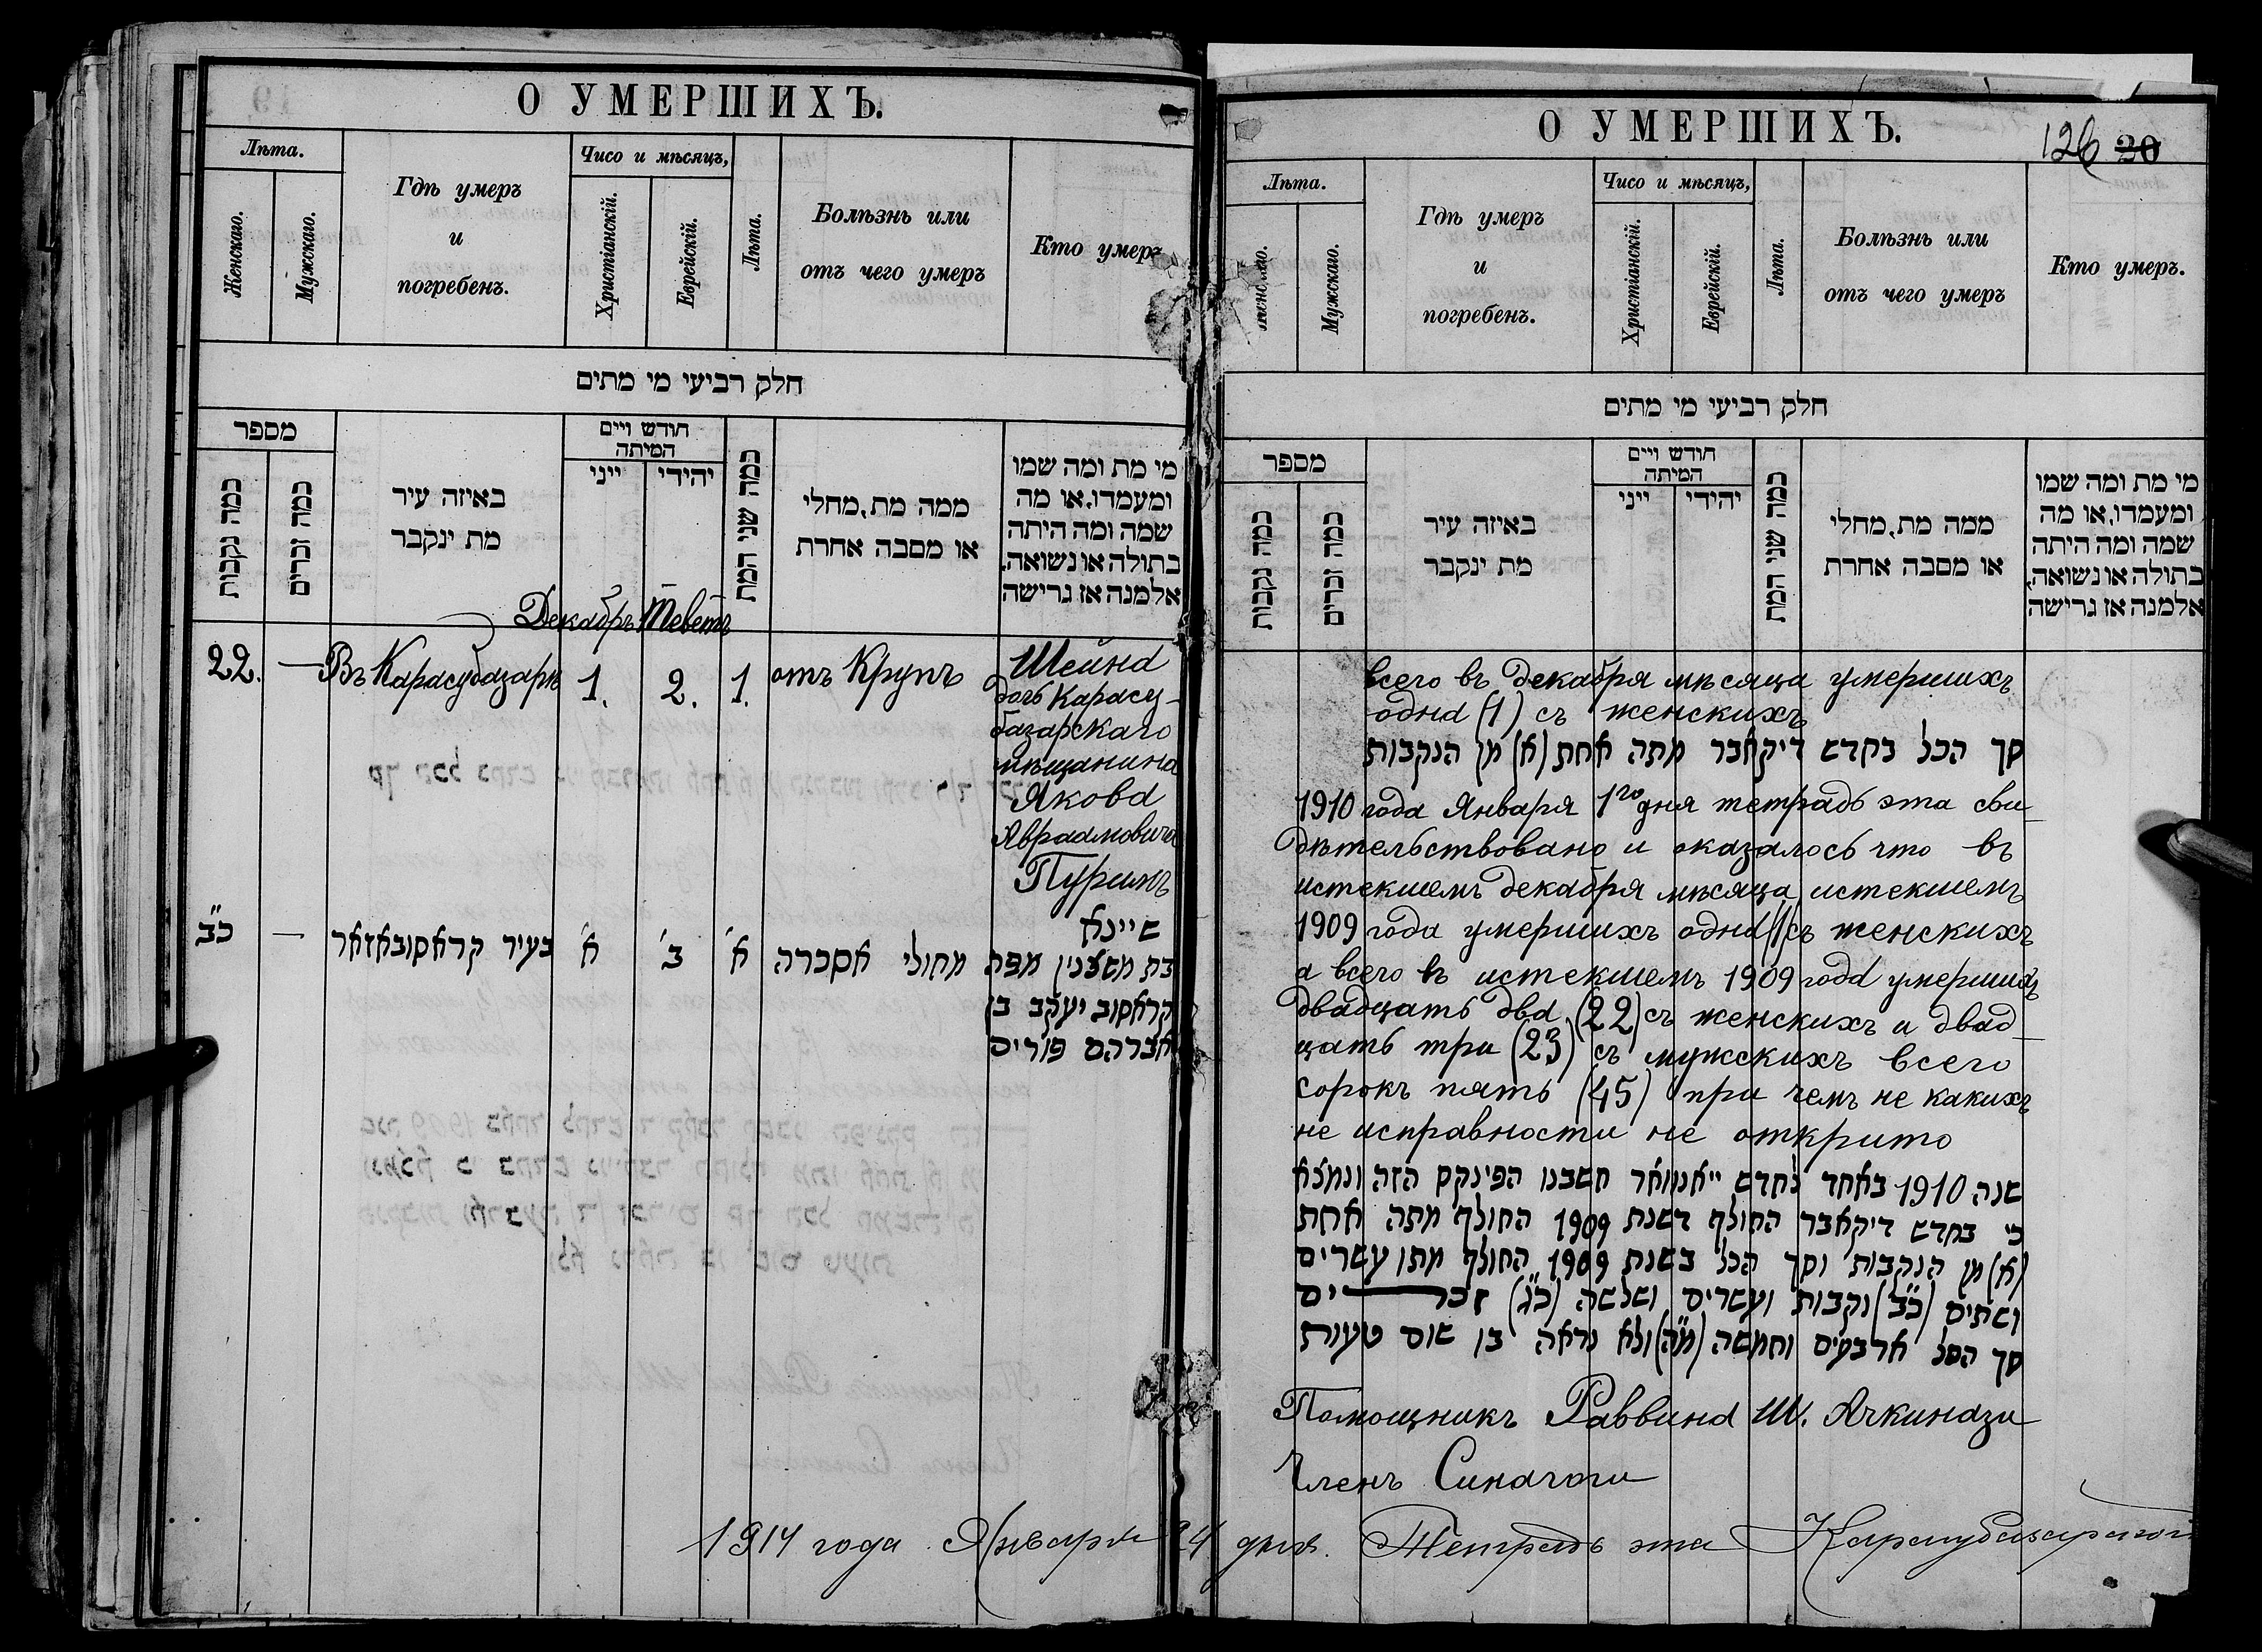 О УМЕРШИХЪ.
Лѣта.
Женскаго.
Мужскаго.
Гдѣ умеръ
и
погребенъ.
Чисо и мѣсяцъ,
Христіанскій.
Еврейскій.
Лѣта.
Болѣзнь или
отъ чего умеръ
Кто умеръ
חלק רביעי מי מתים
מספר
כמה נקבות
כמה זכרים
באיזה עיר
מת ינקבר
חודש ויים
המיתה
ייני
יהידי
כמה שני המת
ממה מת, מחלי
או מסבה אחרת
מי מת ומה שמו
ומעמדו, או מה
שמה ומה היתה
בתולה או נשואה,
אלמנה אז גרישה
Декабръ Теветъ
22. — Въ Карасубазарѣ 1. 2. 1. отъ Крупъ
Шейна
дочь Карасу-
базарскаго
мѣщанина
Якова
Авраамовича
Пуримъ
כ"ב — בעיר קראסובאזאר א' ב' א' מחולי אסכרה
שיינא
בת משצנין מפת
קראסוב יעקב בן
אברהם פורים
О УМЕРШИХЪ.
126 20
Лѣта.
Мужскаго.
Гдѣ умеръ
и
погребенъ.
Чисо и мѣсяцъ,
Христіанскій.
Еврейскій.
Лѣта.
Болѣзнь или
отъ чего умеръ
Кто умеръ.
חלק רביעי מי מתים
מספר
כמה נקבות
כמה זכרים
באיזה עיר
מת ינקבר
חודש ויים
המיתה
ייני
יהידי
כמה שני המת
ממה מת, מחלי
או מסבה אחרת
מי מת ומה שמו
ומעמדו, או מה
שמה ומה היתה
בתולה או נשואה,
אלמנה אז גרישה
всего въ декабря мѣсяца умершихъ
одна (1) съ женскихъ
סך הכל בחדש דיקאבר מתה אחת (א) מן הנקבות
1910 года Января 1го дня тетрадь эта сви-
дѣтельствовано и оказалось что въ
истекшемъ декабря мѣсяца истекшемъ
1909 года умершихъ одна (1) съ женскихъ
а всего въ истекшемъ 1909 года умершихъ
двадцать два (22) съ женскихъ и двад-
цать три (23) съ мужскихъ всего
сорокъ пять (45) при чемъ не какихъ
не исправности не открито
שנה 1910 באחד לחדש יאנוואר חשבנו הפינקס הזה ונמצא
כי בחדש דיקאבר החולף דשנת 1909 החולף מתה אחת
(א) מן הנקבות וסך הכל בשנת 1909 החולף מתו עשרים
ושתים (כ"ב) נקבות ועשרים ושלשה (כ"ג) זכרים
סך הכל ארבעים וחמשה (מ"ה) ולא נראה בו שום טעות
Помощникъ Раввина Ш. Ачкинази
Членъ Синагоги
1914 года Января 24 дня. Тетрадь эта Карасубазарской